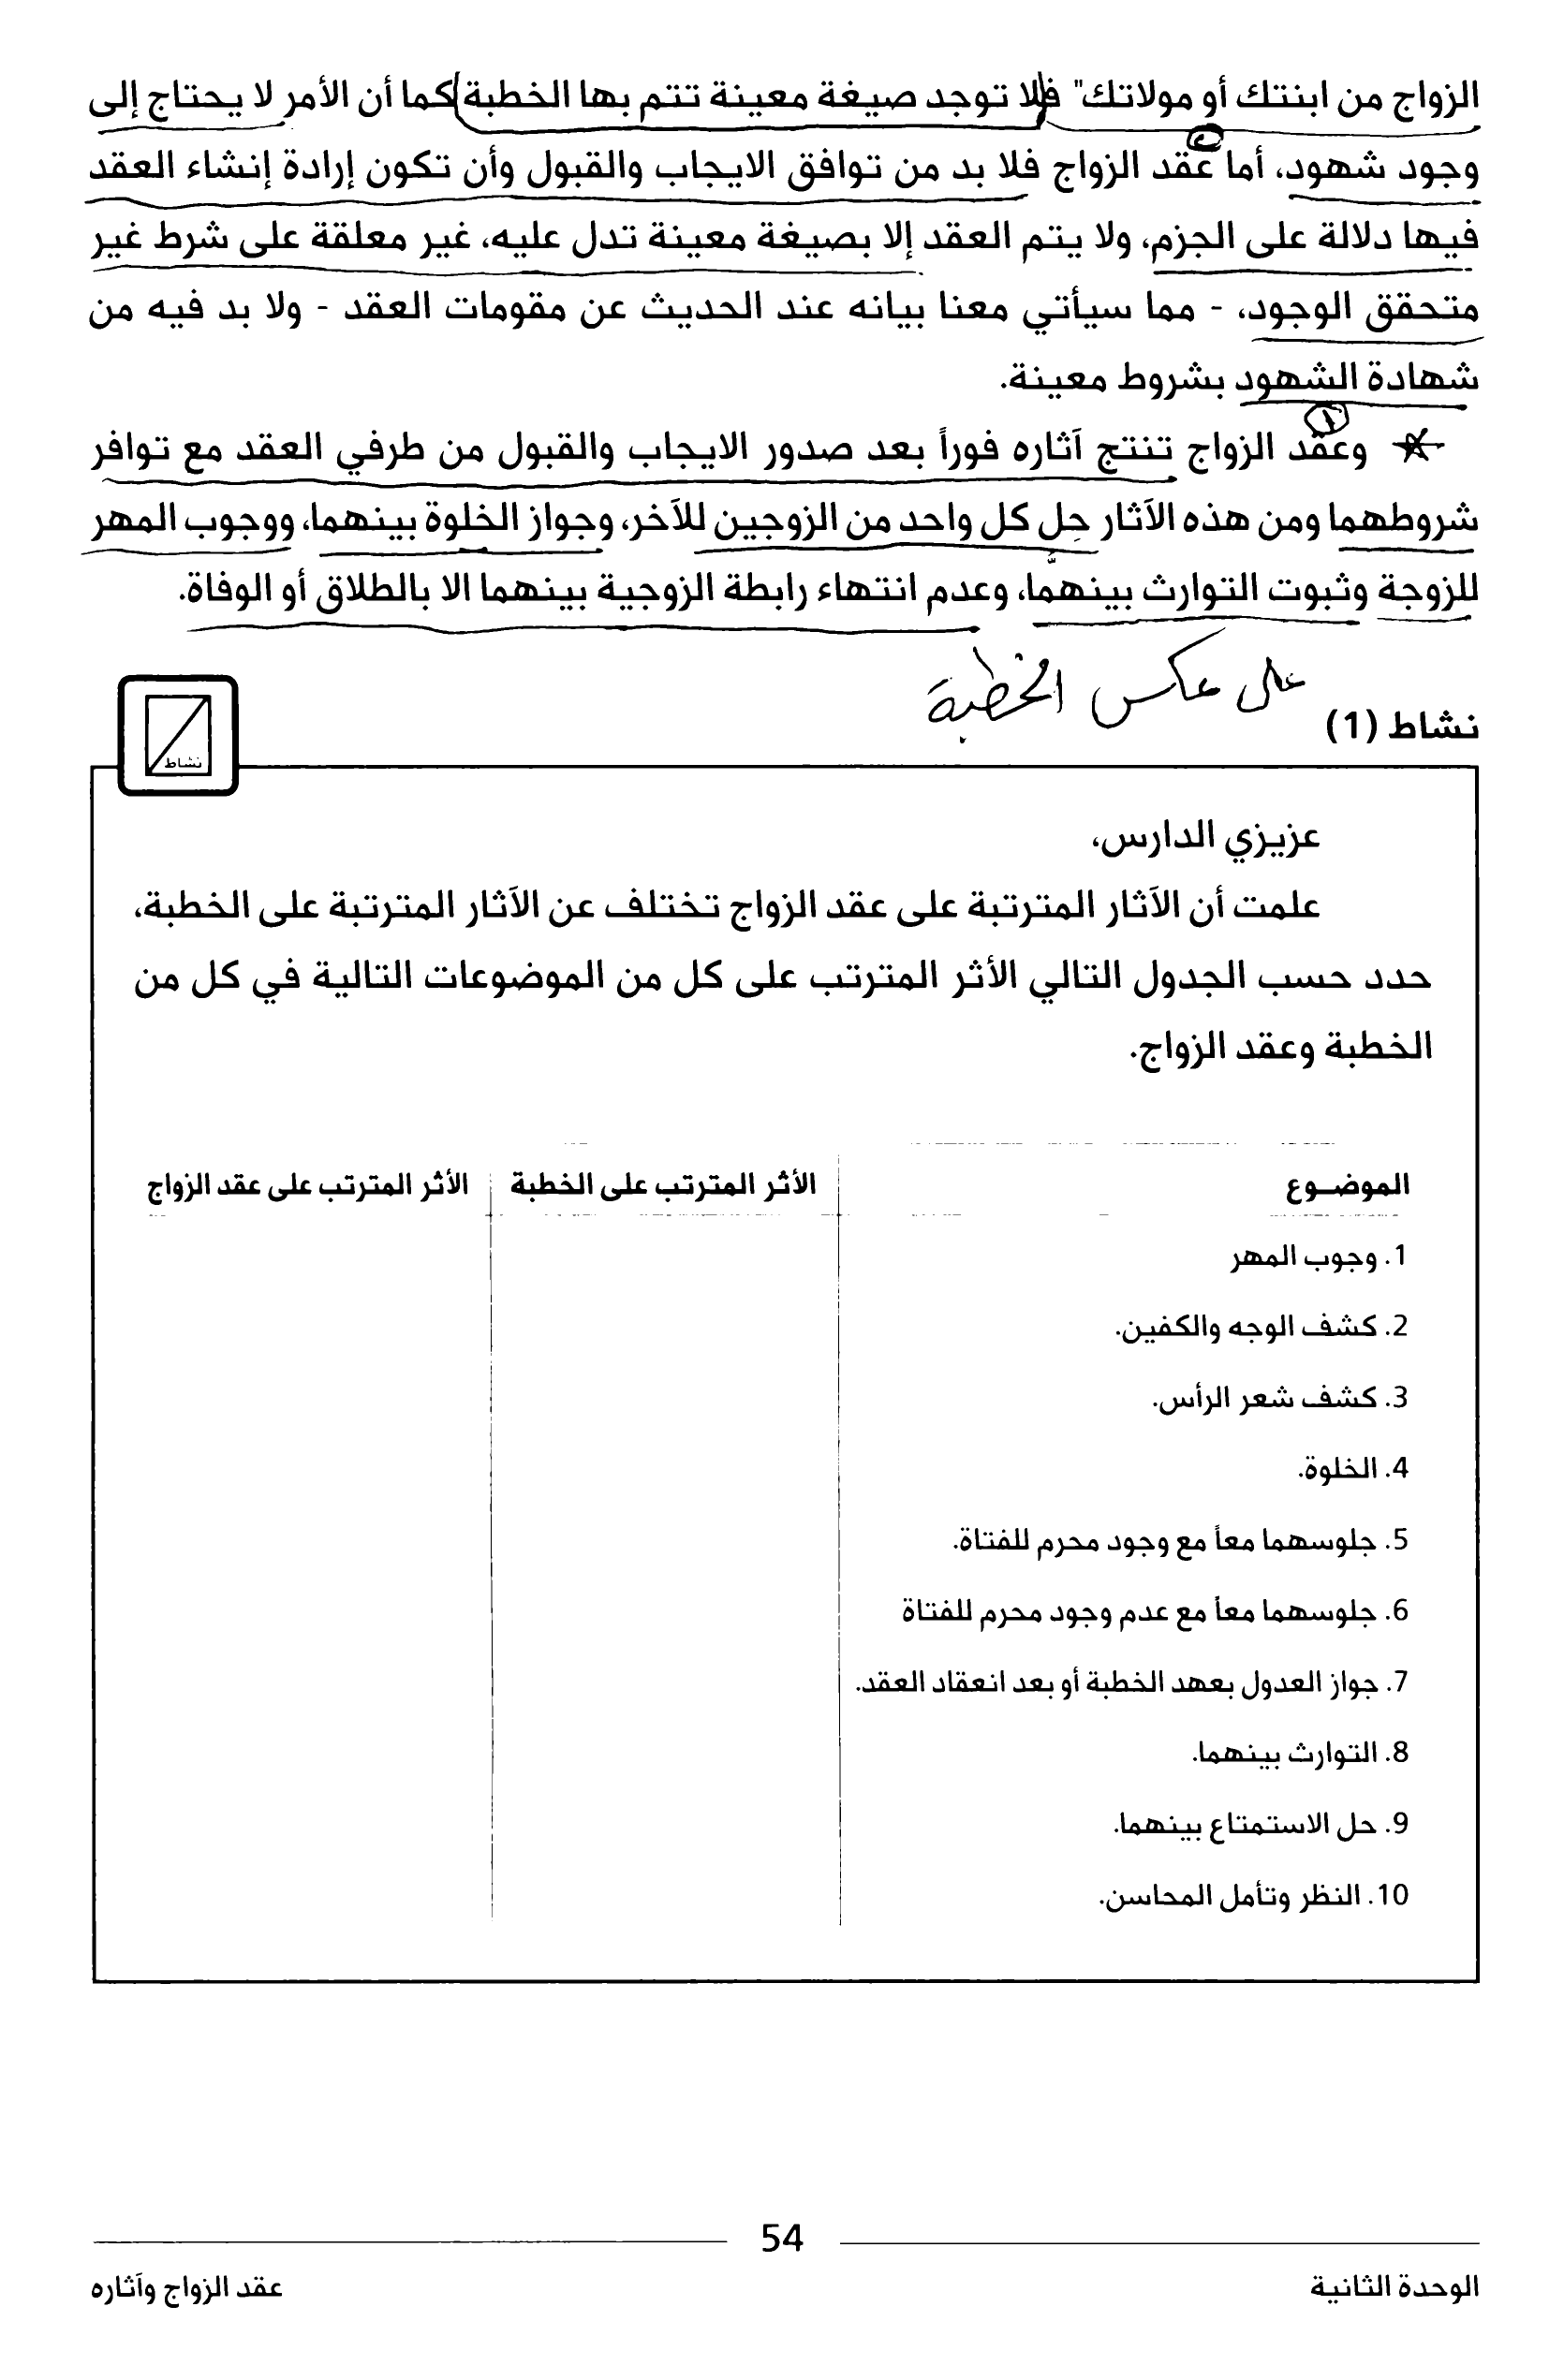 الزواج من ابنتك أو مولاتك" فلا توجد صيغة معينة تتم بها الخطبة كما أن الأمر لا يحتاج إلى
وجود شهود، أما عقد الزواج فلا بد من توافق الايجاب والقبول وأن تكون إرادة إنشاء العقد
فيها دلالة على الجزم، ولا يتم العقد إلا بصيغة معينة تدل عليه، غير معلقة على شرط غير
متحقق الوجود، - مما سيأتي معنا بيانه عند الحديث عن مقومات العقد - ولا بد فيه من
شهادة الشهود بشروط معينة.
وعقد الزواج تنتج آثاره فوراً بعد صدور الايجاب والقبول من طرفي العقد مع توافر
شروطهما ومن هذه الآثار حِل كل واحد من الزوجين للآخر، وجواز الخلوة بينهما، ووجوب المهر
للزوجة وثبوت التوارث بينهما، وعدم انتهاء رابطة الزوجية بينهما الا بالطلاق أو الوفاة.
على عكس الخطبة
نشاط (1)
نشاط
عزيزي الدارس،
علمت أن الآثار المترتبة على عقد الزواج تختلف عن الآثار المترتبة على الخطبة،
حدد حسب الجدول التالي الأثر المترتب على كل من الموضوعات التالية في كل من
الخطبة وعقد الزواج.
الموضــوع الأثر المترتب على الخطبة الأثر المترتب على عقد الزواج
1. وجوب المهر
2. كشف الوجه والكفين.
3. كشف شعر الرأس.
4. الخلوة.
5. جلوسهما معاً مع وجود محرم للفتاة.
6. جلوسهما معاً مع عدم وجود محرم للفتاة
7. جواز العدول بعهد الخطبة أو بعد انعقاد العقد.
8. التوارث بينهما.
9. حل الاستمتاع بينهما.
10. النظر وتأمل المحاسن.
54
الوحدة الثانية
عقد الزواج وآثاره